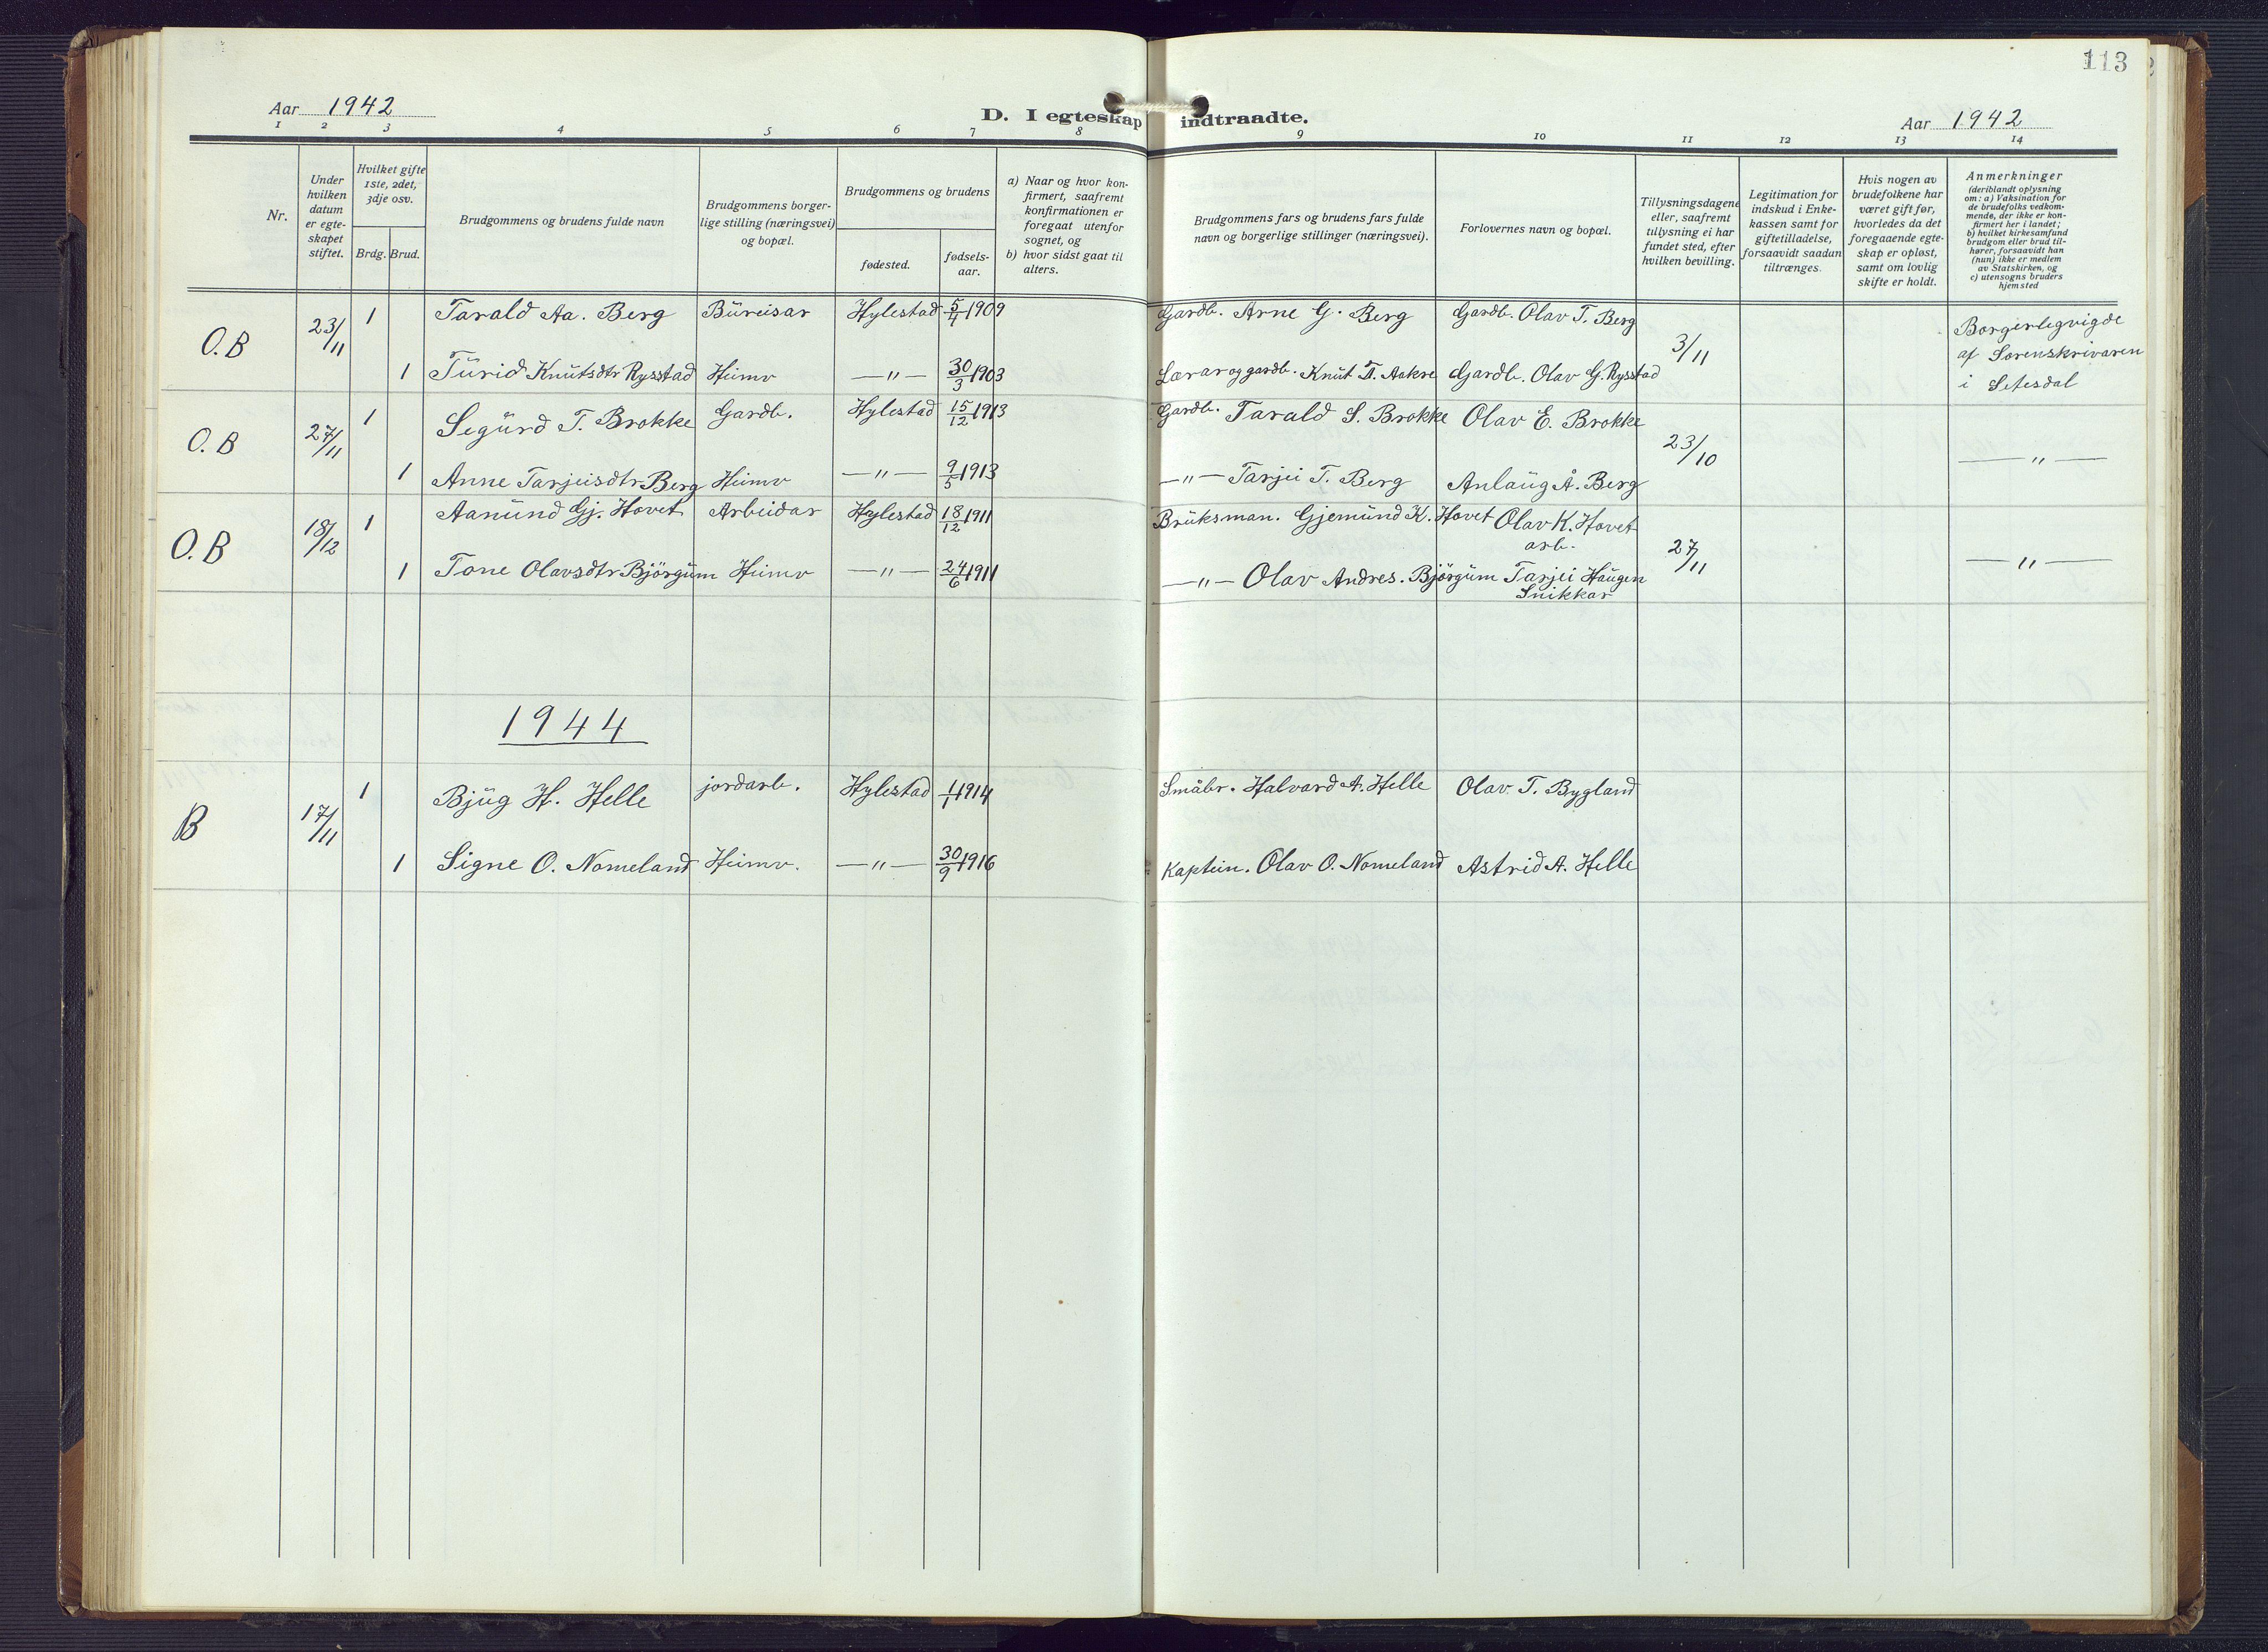 113
Aar 1942
D. I egteskap indtraadte.
Aar 1942
1 2 3 4 5 6 7 8 9 10 11 12 13 14
Nr.
Under hvilken datum er egte-skapet stiftet.
Hvilket gifte 1ste, 2det, 3dje osv.
Brdg. Brud.
Brudgommens og brudens fulde navn
Brudgommens borger-lige stilling (næringsvei) og bopæl.
Brudgommens og brudens
fødested.
fødsels-aar.
a) Naar og hvor kon-firmert, saafremt konfirmationen er foregaat utenfor sognet, og
b) hvor sidst gaat til alters.
Brudgommens fars og brudens fars fulde navn og borgerlige stillinger (næringsvei).
Forlovernes navn og bopæl.
Tillysningsdagene eller, saafremt tillysning ei har fundet sted, efter hvilken bevilling.
Legitimation for indskud i Enke-kassen samt for giftetilladelse, forsaavidt saadan tiltrænges.
Hvis nogen av brudefolkene har været gift før, hvorledes da det foregaaende egte-skap er opløst, samt om lovlig skifte er holdt.
Anmerkninger (deriblandt oplysning om: a) Vaksination for de brudefolks vedkom-mende, der ikke er kon-firmert her i landet; b) hvilket kirkesamfund brudgom eller brud til-hører, forsaavidt han (hun) ikke er medlem av Statskirken, og c) utensogns bruders hjemsted
O.B 23/11 1 Tarald Aa. Berg Büreisar Hylestad 5/4 1909 Gardb. Arne G. Berg Gardb. Olav T. Berg 3/11 Borgerlegvigde af Sorenskrivaren i Setesdal
1 Türid Knütsdtr Rysstad Heimv —"— 30/3 1903 Lærar og gardb. Knüt T. Aakre Gardb. Olav G. Rysstad
O.B 27/11 1 Segürd T. Brokke Gardb. Hylestad 15/12 1913 Gardb. Tarald S. Brokke Olav E. Brokke 23/10 —"—
1 Anne Tarjeisdtr Berg Heimv —"— 9/5 1913 —"— Tarjei T. Berg Anlaüg Å. Berg
O.B 18/12 1 Aanünd Gj. Hovet Arbeidar Hylestad 18/12 1911 Brüksman. Gjemünd K. Hovet Olav K. Hovet arb. 27/11 —"—
1 Tone Olavsdtr Bjørgüm Heimv —"— 24/6 1911 —"— Olav Andres. Bjørgüm Tarjei Haügen Snikkar
1944
B 17/11 1 Bjüg H. Helle jordarb. Hylestad 1/1 1914 Småbr. Halvard A. Helle Olav T. Bygland
1 Signe O. Nomeland Heimv. —"— 30/9 1916 Kaptein. Olav O. Nomeland Astrid A. Helle